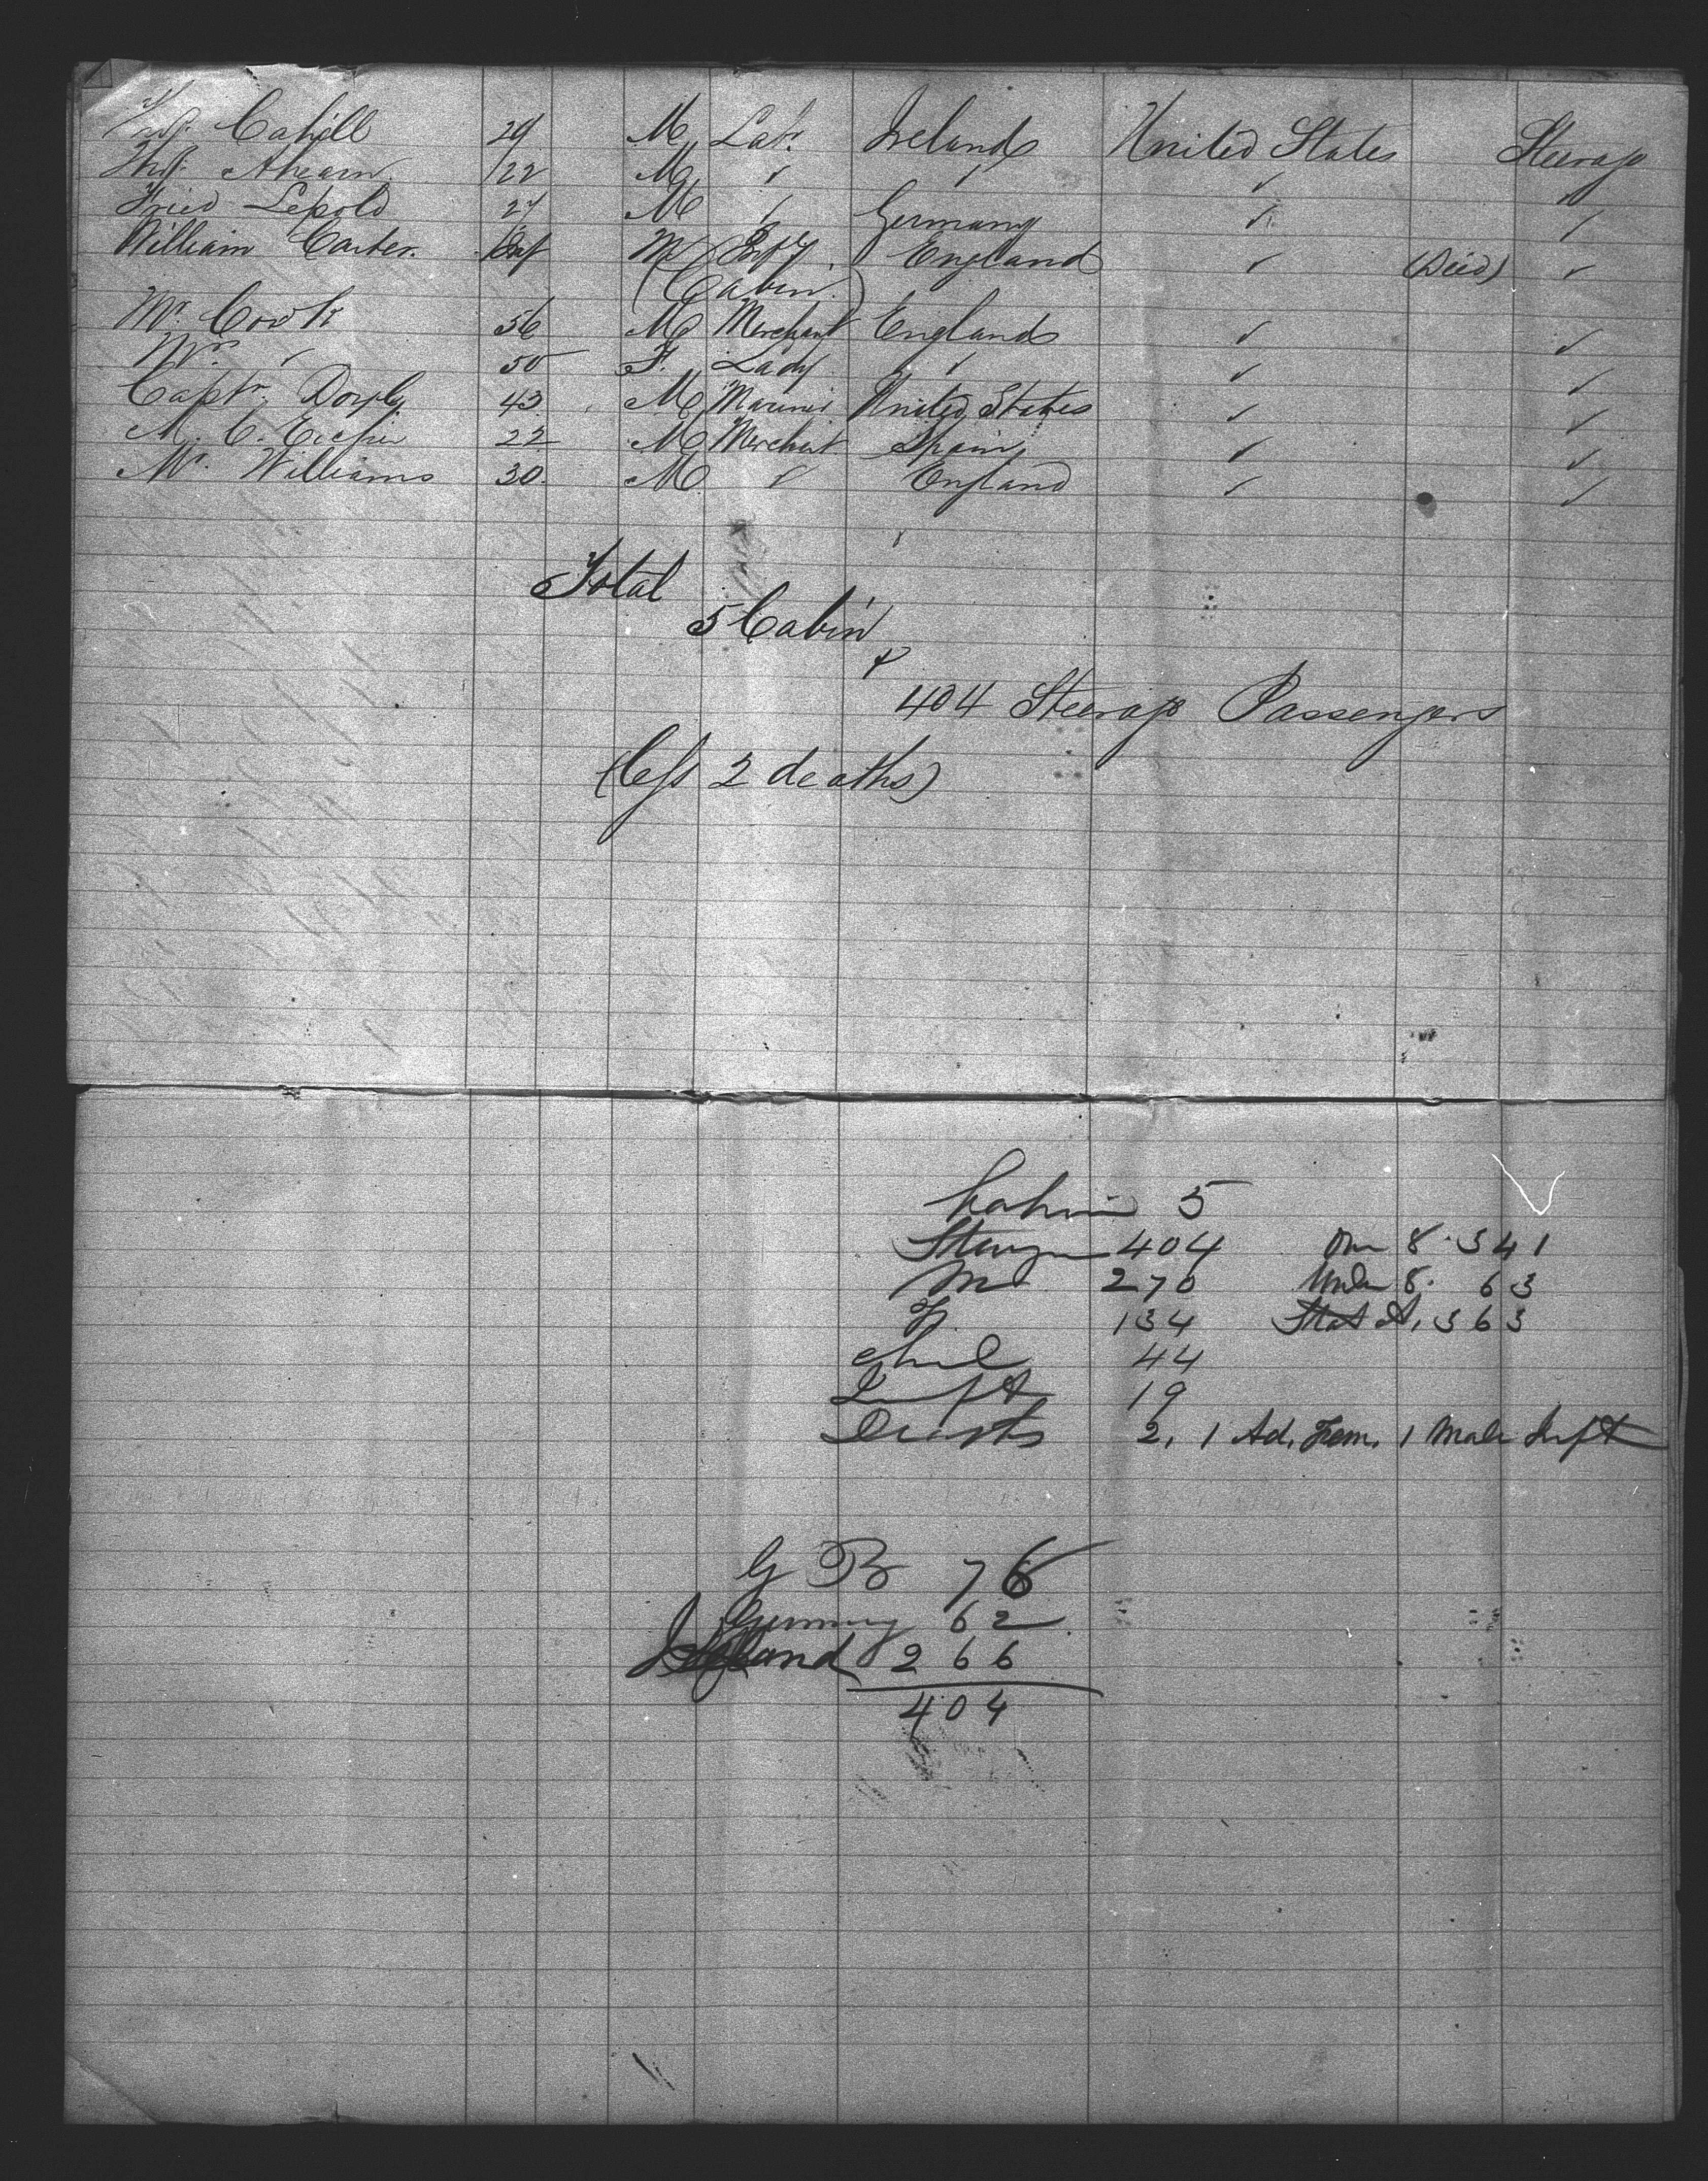 Thos. Cahill 29 M Labr. Ireland United States Steerage
Thos. Ahearn 22 M ✓ ✓ ✓ ✓
Fried Lepold 27 M ✓ Germany ✓ ✓
William Carter. Inft M Inft England ✓ (Died) ✓
(Cabin)
Mr. Cook 56 M Merchant England ✓ ✓
Mrs. ✓ 50 F. Lady ✓ ✓ ✓
Captn. 43 M Mariner United States ✓ ✓
M. C. 22 M Merchant Spain ✓ ✓
Mr. Williams 30. M ✓ England ✓ ✓
Total
5 Cabin
&
404 Steerage Passengers
(less 2 deaths)
Cabin 5
Steerage 404 Over 8. 341
M 270 Under 8. 63
F. 134 Stat A. 363
Chil 44
Inft 19
Deaths 2. 1 Ad. Fem. 1 Male Inft
G B 76
Germany 62
Ireland 266
404